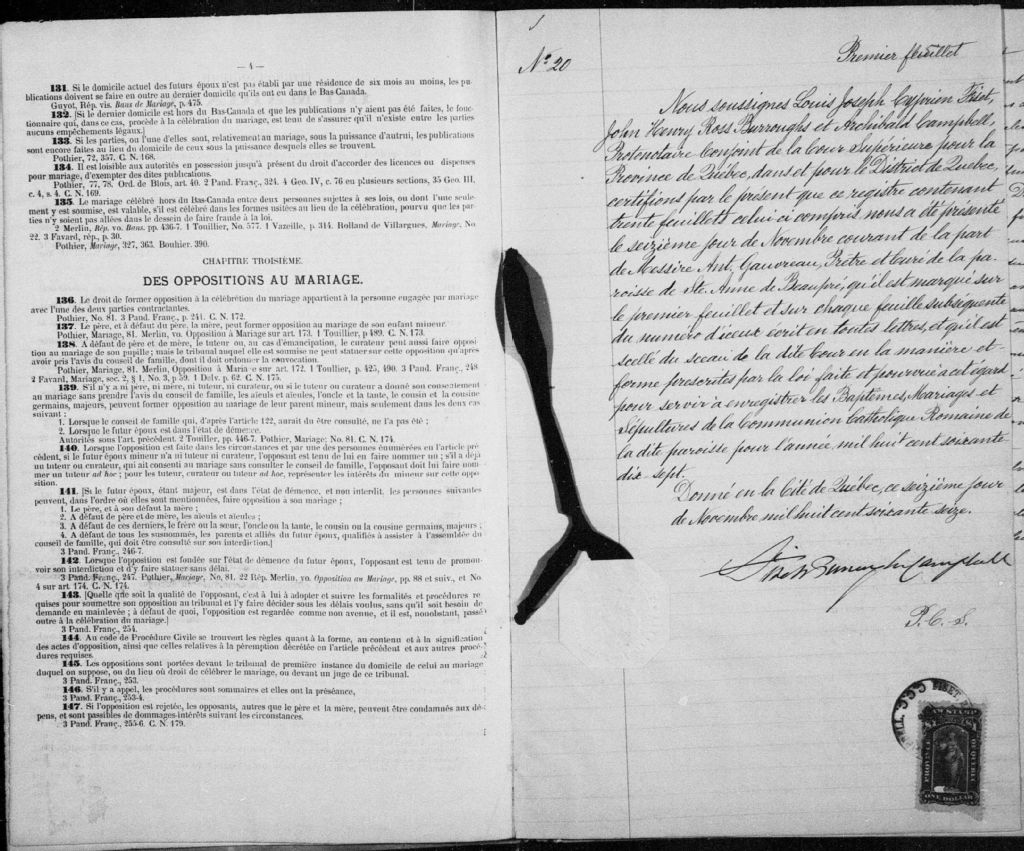 — 4 —
131. Si le domicile actuel des futurs époux n'est pas établi par une résidence de six mois au moins, les pu-
blications doivent se faire en outre au dernier domicile qu'ils ont eu dans le Bas-Canada.
Guyot, Rép. vis. Bans de Mariage, p. 475.
132. [Si le dernier domicile est hors du Bas-Canada et que les publications n'y aient pas été faites, le fonc-
tionnaire qui, dans ce cas, procède à la célébration du mariage, est tenu de s'assurer qu'il n'existe entre les parties
aucuns empêchements légaux.]
133. Si les parties, ou l'une d'elles sont, relativement au mariage, sous la puissance d'autrui, les publications
sont encore faites au lieu du domicile de ceux sous la puissance desquels elles se trouvent.
Pothier, 72, 357. C. N. 168.
134. Il est loisible aux autorités en possession jusqu'à présent du droit d'accorder des licences ou dispenses
pour mariage, d'exempter des dites publications.
Pothier, 77, 78. Ord. de Blois, art. 40. 2 Pand. Franç., 324. 4 Geo. IV, c. 76 en plusieurs sections, 35 Geo. III,
c. 4, s. 4. C. N. 169.
135. Le mariage célébré hors du Bas-Canada entre deux personnes sujettes à ses lois, ou dont l'une seule-
ment y est soumise, est valable, s'il est célébré dans les formes usitées au lieu de la célébration, pourvu que les par-
ties n'y soient pas allées dans le dessein de faire fraude à la loi.
2 Merlin, Rép. vo. Bans. pp. 436-7. 1 Touillier, No. 577. 1 Vazeille, p. 314. Rolland de Villargues, Mariage. No
22. 3 Favard, rép., p. 30.
Pothier, Mariage, 327, 363. Bouhier. 390.
CHAPITRE TROISIÉME.
DES OPPOSITIONS AU MARIAGE.
136. Le droit de former opposition à la célébration du mariage appartient à la personne engagée par mariage
avec l'une des deux parties contractantes.
Pothier, No. 81. 3 Pand. Franç., p. 241. C. N. 172.
137. Le père, et à défaut du père, la mère, peut former opposition au mariage de son enfant mineur.
Pothier, Mariage, 81. Merlin, vo. Opposition à Mariage sur art. 173. 1 Touillier, p 489. C. N. 173.
138. A défaut de père et de mère, le tuteur ou, au cas d'émancipation, le curateur peut aussi faire opposi-
tion au mariage de son pupille ; mais le tribunal auquel elle est soumise ne peut statuer sur cette opposition qu'après
avoir pris l'avis du conseil de famille, dont il doit ordonner la convocation.
Pothier, Mariage, 81. Merlin, vo. Opposition à Maria e sur art. 172. 1 Toullier, p. 425, 490. 3 Pand. Franç., 248
2 Favard, Mariage, sec. 2, § 1. No. 3, p 59. 1 Delv. p. 62. C. N. 175.
139. S'il n'y a ni père, ni mère, ni tuteur, ni curateur, ou si le tuteur ou curateur a donné son consentement
au mariage sans prendre l'avis du conseil de famille, les aïeuls et aïeules, l'oncle et la tante, le cousin et la cousine
germains, majeurs, peuvent former opposition au mariage de leur parent mineur, mais seulement dans les deux cas
suivant :
1. Lorsque le conseil de famille qui, d'après l'article 122, aurait du être consulté, ne l'a pas été ;
2. Lorsque le futur époux est dans l'état de démence.
Autorités sous l'art. précédent. 2 Touiller, pp. 446-7. Pothier, Mariage; No. 81. C. N. 174.
140. Lorsque l'opposition est faite dans les circonstances et par une des personnes énumérées en l'article pré-
cédent, si le futur époux mineur n'a ni tuteur ni curateur, l'opposant est tenu de lui en faire nommer un ; s'il a déjà
un tuteur ou curateur, qui ait consenti au mariage sans consulter le conseil de famille, l'opposant doit lui faire nom-
mer un tuteur ad hoc ; pour les tuteur, curateur ou tuteur ad hoc, représenter les intérêts du mineur sur cette oppo-
sition.
141. [Si le futur époux, étant majeur, est dans l'état de démence, et non interdit, les personnes suivantes
peuvent, dans l'ordre où elles sont mentionnées, faire opposition à son mariage ;
1. Le père, et à son défaut la mère ;
2. A défaut de père et de mère, les aïeuls et aïeules ;
3. A défaut de ces derniers, le frère ou la sœur, l'oncle ou la tante, le cousin ou la cousine germains, majeurs ;
4. A défaut de tous les susnommés, les parents et alliés du futur époux, qualifiés à assister à l'assemblée du
conseil de famille, qui doit être consulté sur son interdiction.]
3 Pand. Franç., 246-7.
142. Lorsque l'opposition est fondée sur l'état de démence du futur époux, l'opposant est tenu de promou-
voir son interdiction et d'y faire statuer sans délai.
3 Pand. Franç., 247. Pothier, Mariage, No, 81. 22 Rép. Merlin, vo. Opposition au Mariage, pp. 88 et suiv., et No.
4 sur art. 174. C. N. 174.
143. [Quelle que soit la qualité de l'opposant, c'est à lui à adopter et suivre les formalités et procédures re
quises pour soumettre son opposition au tribunal et l'y faire décider sous les délais voulus, sans qu'il soit besoin de
demande en mainlevée ; à défaut de quoi, l'opposition est regardée comme non avenue, et il est, nonobstant, passé
outre à la célébration du mariage.]
3 Pand. Franç., 254.
144. Au code de Procédure Civile se trouvent les règles quant à la forme, au contenu et à la signification
des actes d'opposition, ainsi que celles relatives à la péremption décrétée en l'article précédent et aux autres procé-
dures requises.
145. Les oppositions sont portées devant le tribunal de première instance du domicile de celui au mariage
duquel on suppose, ou du lieu où droit de célébrer le mariage, ou devant un juge de ce tribunal.
3 Pand. Franç., 253.
146. S'il y a appel, les procédures sont sommaires et elles ont la préséance,
3 Pand. Franç., 253-4.
147. Si l'opposition est rejetée, les opposants, autres que le père et la mère, peuvent être condamnés aux dé-
pens, et sont passibles de dommages-intérêts suivant les circonstances.
3 Pand. Franç., 255-6. C. N. 179.
No 20
Premier feuillet
Nous soussignés Louis Joseph Cyprien Fiset,
John Henry Ross Burroughs et Archibald Campbell,
Protonotaire Conjoint de la Cour Supérieure pour la
Province de Québec, dans et pour le District de Québec,
certifions par le présent que ce registre contenant
trente feuillets celui ci compris nous a été présenté
le seizième jour de Novembre courant de la part
de Messire Ant. Gauvreau, Prêtre et curé de la pa-
roisse de Ste. Anne de Beaupré, qu'il est marqué sur
le premier feuillet et sur chaque feuille subséquente
du numéro d'iceux écrit en toutes lettres, et qu'il est
scellé du sceau de la dite Cour en la manière et
forme prescrites par la loi faite et pourvue à cet égard
pour servir à enregistrer les Baptêmes, Mariages et
Sépultures de la Communion Catholique Romaine de
la dite paroisse pour l'année mil huit cent soixante
dix sept.
Donné en la Cité de Québec, ce seizième jour
de Novembre mil huit cent soixante seize.
Fiset Burroughs Campbell
P. C. S.
FISET
STAMP
PROVINCE
OF QUEBEC
ONE DOLLAR